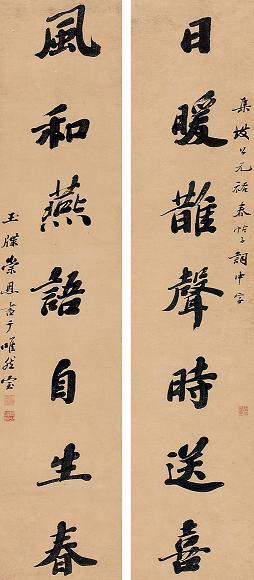 集坡公元祐春帖子詞中字
日暖䧿聲時送喜
風和燕語自生春
玉牒崇恩書于唯然室